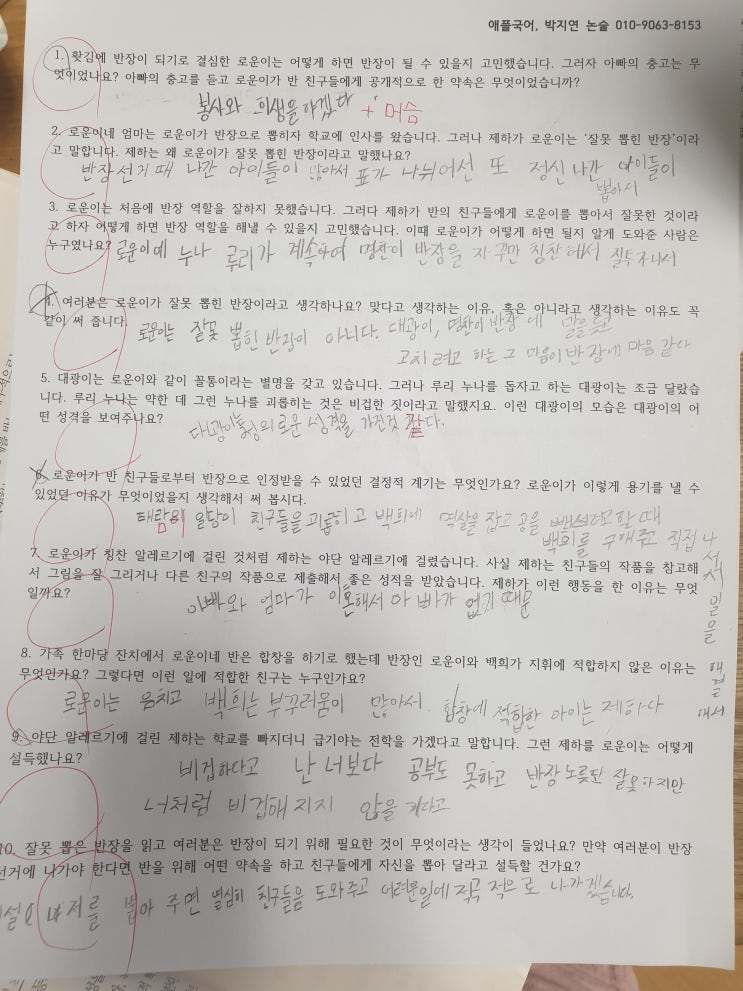 애플국어, 박지연 논술 010-9063-8153
1. 홧김에 반장이 되기로 결심한 로운이는 어떻게 하면 반장이 될 수 있을지 고민했습니다. 그러자 아빠의 충고는 무
엇이었나요? 아빠의 충고를 듣고 로운이가 반 친구들에게 공개적으로 한 약속은 무엇이었습니까?
봉사와 희생을 하겠다 + 머슴
2. 로운이네 엄마는 로운이가 반장으로 뽑히자 학교에 인사를 왔습니다. 그러나 제하가 로운이는 '잘못 뽑힌 반장'이라
고 말합니다. 제하는 왜 로운이가 잘못 뽑힌 반장이라고 말했나요?
반장선거 때 나간 아이들이 많아서 표가 나뉘어선 또 정신 나간 아이들이
뽑아서
3. 로운이는 처음에 반장 역할을 잘하지 못했습니다. 그러다 제하가 반의 친구들에게 로운이를 뽑아서 잘못한 것이라
고 하자 어떻게 하면 반장 역할을 해낼 수 있을지 고민했습니다. 이때 로운이가 어떻게 하면 될지 알게 도와준 사람은
누구였나요? 로운이에 누나 루리가 계속하여 명찬이 반장을 자꾸만 칭찬해서 질투가나서
4. 여러분은 로운이가 잘못 뽑힌 반장이라고 생각하나요? 맞다고 생각하는 이유, 혹은 아니라고 생각하는 이유도 꼭
같이 써 줍니다.
로운이는 잘못 뽑힌 반장이 아니다. 대광이, 명찬이 반장에 말을 듣고
고치려고 하는 그 마음이 반장에 마음 같다
5. 대광이는 로운이와 같이 꼴통이라는 별명을 갖고 있습니다. 그러나 루리 누나를 돕자고 하는 대광이는 조금 달랐습
니다. 루리 누나는 약한 데 그런 누나를 괴롭히는 것은 비겁한 짓이라고 말했지요. 이런 대광이의 모습은 대광이의 어
떤 성격을 보여주나요?
대광이는 정의로운 성격을 가진것 같다.
6. 로운이가 반 친구들로부터 반장으로 인정받을 수 있었던 결정적 계기는 무엇인가요? 로운이가 이렇게 용기를 낼 수
있었던 이유가 무엇이었을지 생각해서 써 봅시다.
일당이 친구들을 괴롭히고 백희에 멱살을 잡고 공을 때
백희를 구해주고 직접 나
서서 일을 해결해서
7. 로운이가 칭찬 알레르기에 걸린 것처럼 제하는 야단 알레르기에 걸렸습니다. 사실 제하는 친구들의 작품을 참고해
서 그림을 잘 그리거나 다른 친구의 작품으로 제출해서 좋은 성적을 받았습니다. 제하가 이런 행동을 한 이유는 무엇
일까요?
아빠와 엄마가 이혼해서 아빠가 없기 때문
8. 가족 한마당 잔치에서 로운이네 반은 합창을 하기로 했는데 반장인 로운이와 백희가 지휘에 적합하지 않은 이유는
무엇인가요? 그렇다면 이런 일에 적합한 친구는 누구인가요?
로운이는 음치고 백희는 부끄러움이 많아서. 합창에 적합한 아이는 제하다
9. 야단 알레르기에 걸린 제하는 학교를 빠지더니 급기야는 전학을 가겠다고 말합니다. 그런 제하를 로운이는 어떻게
설득했나요?
비겁하다고 난 너보다 공부도 못하고 반장노릇도 잘못하지만
너처럼 비겁해지지 않을 거다고
10. 잘못 뽑은 반장을 읽고 여러분은 반장이 되기 위해 필요한 것이 무엇이라는 생각이 들었나요? 만약 여러분이 반장
선거에 나가야 한다면 반을 위해 어떤 약속을 하고 친구들에게 자신을 뽑아 달라고 설득할 건가요?
저를 뽑아 주면 열심히 친구들을 도와주고 어려운일에 적극적으로 나가겠습니다.